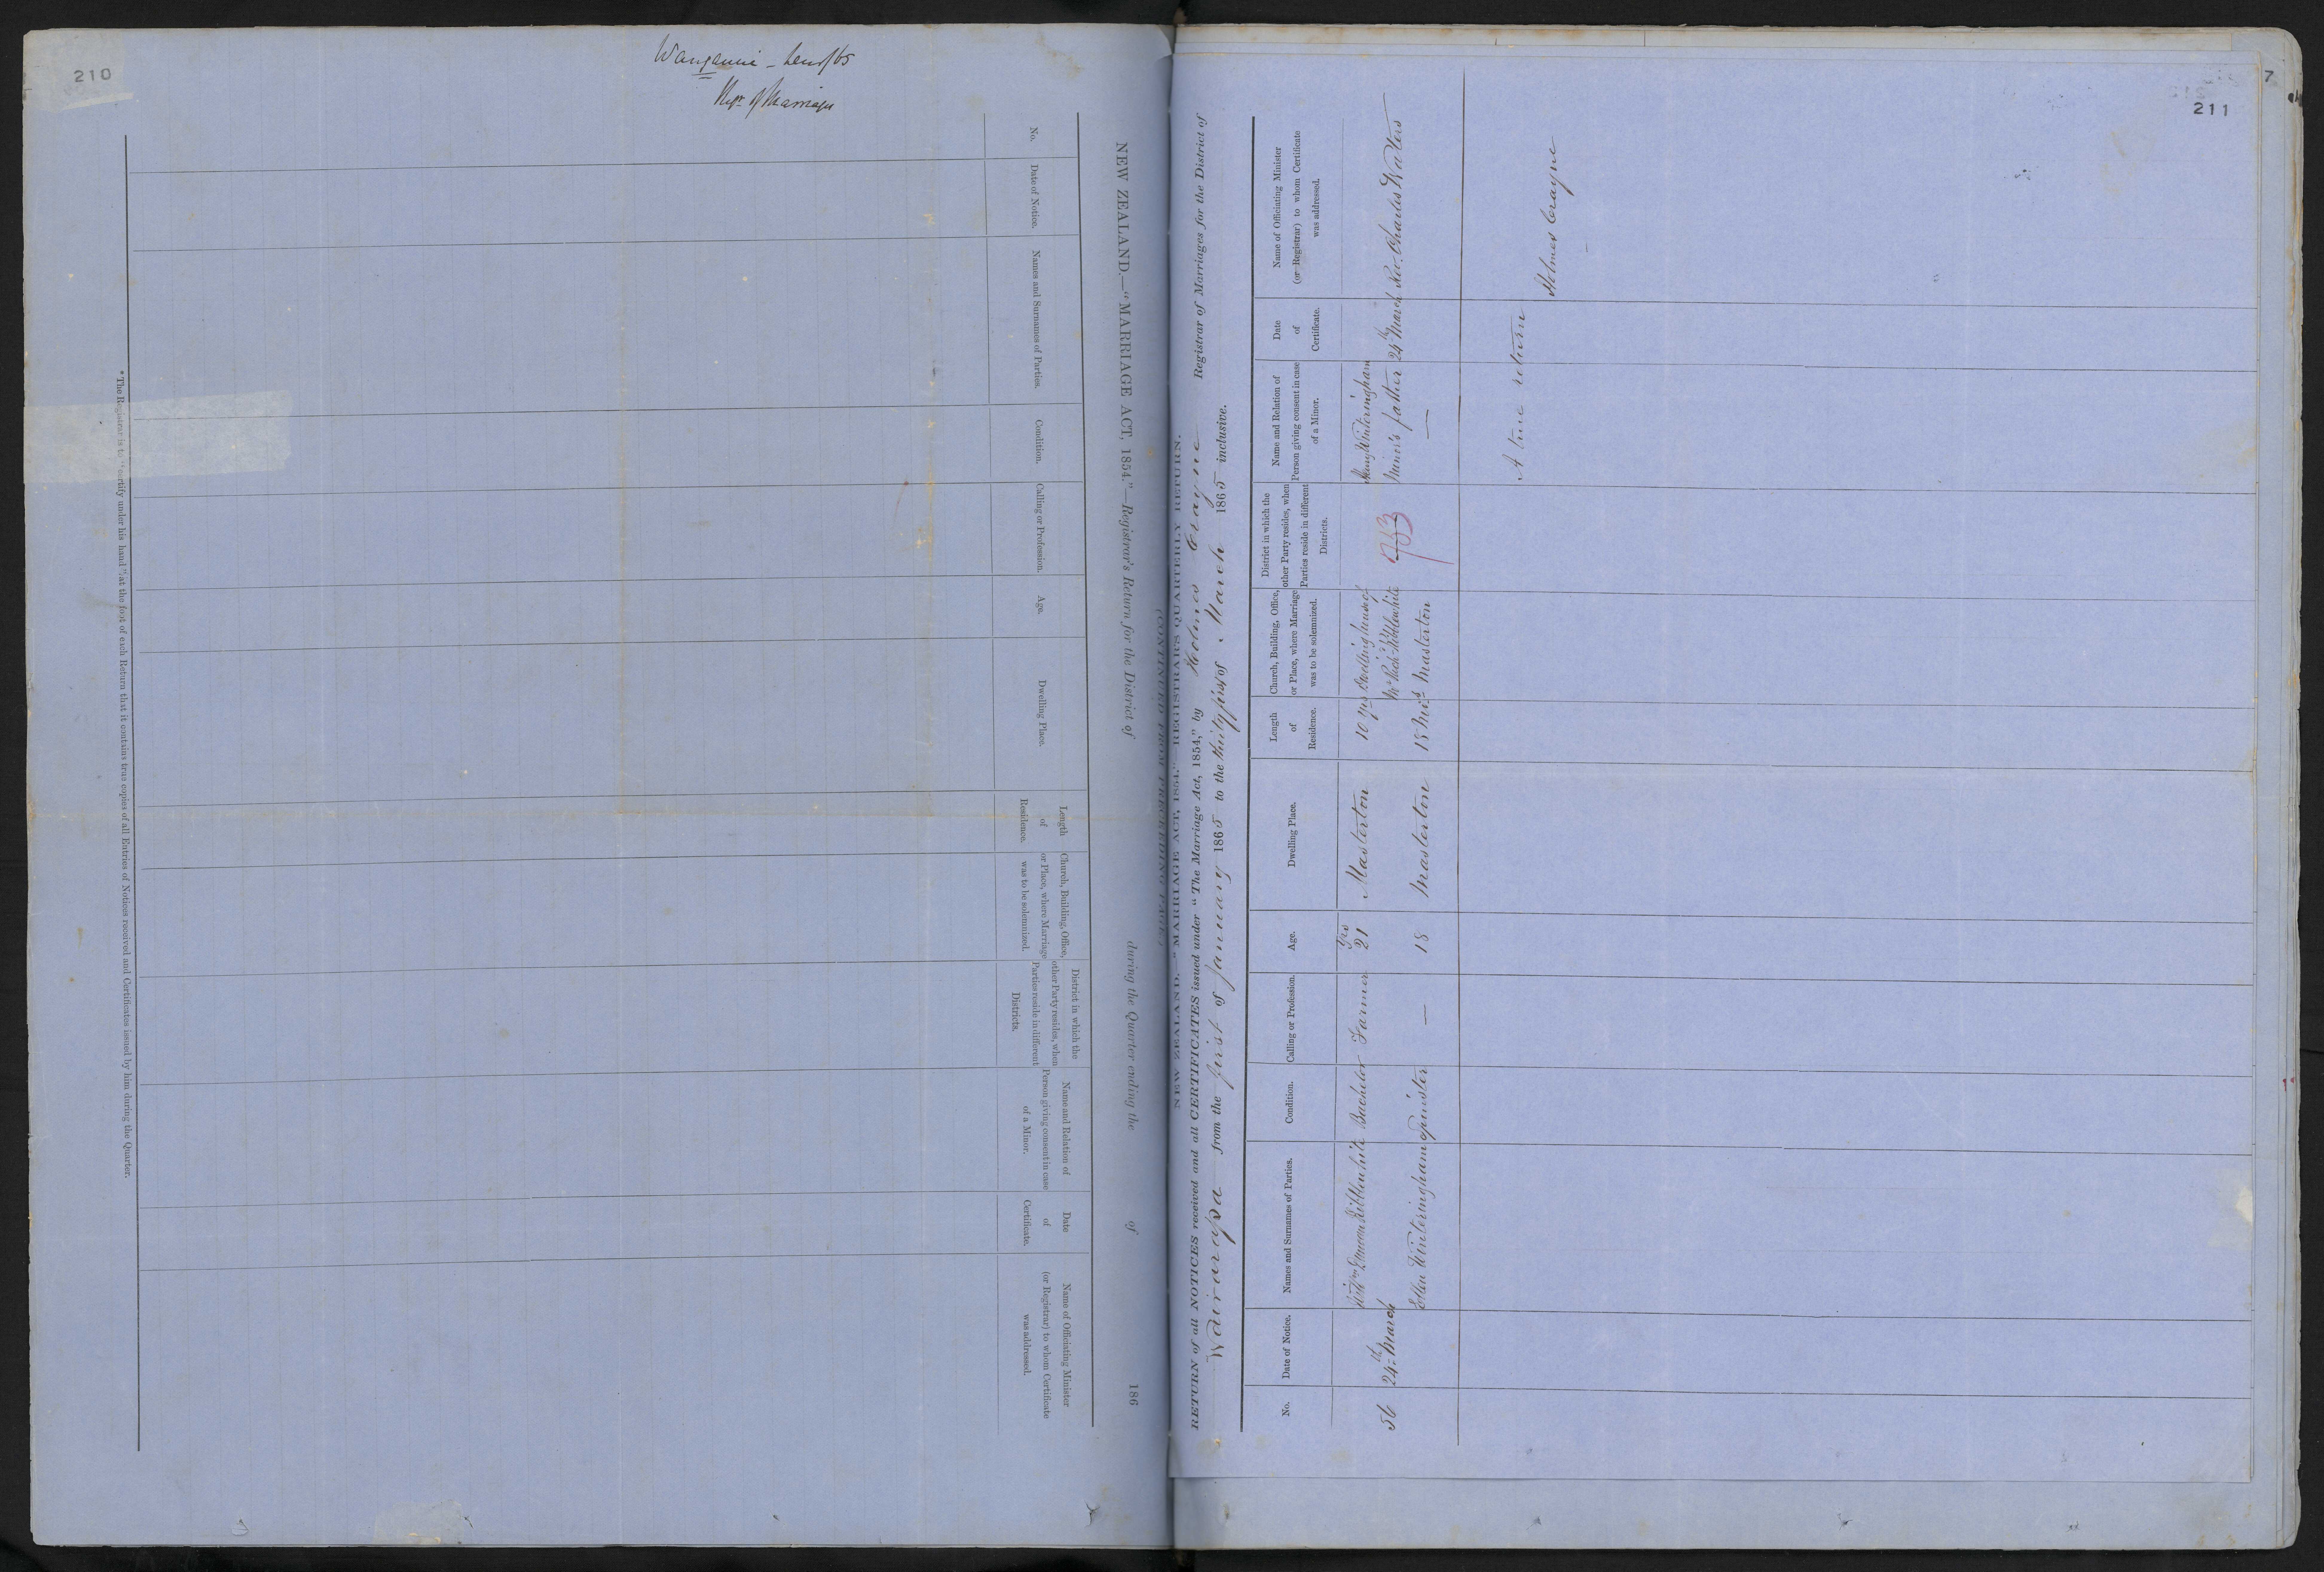 210
Wanganui –
Regr of Marriages
NEW ZEALAND.—"MARRIAGE ACT, 1854."—Registrar's Return for the District of during the Quarter ending the of 186
No.
Date of Notice.
Names and Surnames of Parties.
Condition.
Calling or Profession.
Age.
Dwelling Place.
Length
of
Residence.
Church, Building, Office,
or Place, where Marriage
was to be solemnized.
District in which the
other Party resides, when
Parties reside in different
Districts.
Name and Relation of
Person giving consent in case
of a Minor.
Date
of
Certificate.
Name of Officiating Minister
(or Registrar) to whom Certificate
was addressed.
* The Registrar is to "certify under his hand" "at the foot of each Return that it contains true copies of all Entries of Notices received and Certificates issued by him during the Quarter.
7
211
(CONTINUED FROM PRECEDING PAGE.)
NEW ZEALAND.—"MARRIAGE ACT, 1854."—REGISTRAR'S QUARTERLY RETURN.
RETURN of all NOTICES received and all CERTIFICATES issued under "The Marriage Act, 1854," by Holmes Crayne Registrar of Marriages for the District of
Wairarapa from the first of January 1865 to the thirty first of March 1865 inclusive.
No.
Date of Notice.
Names and Surnames of Parties.
Condition.
Calling or Profession.
Age.
Dwelling Place.
Length
of
Residence.
Church, Building, Office,
or Place, where Marriage
was to be solemnized.
District in which the
other Party resides, when
Parties reside in different
Districts.
Name and Relation of
Person giving consent in case
of a Minor.
Date
of
Certificate.
Name of Officiating Minister
(or Registrar) to whom Certificate
was addressed.
56
24th March
Willm Kibblewhite
Bachelor
Farmer
Yrs
21
Masterton
10 yrs
Dwelling house of
Mr Richd Kibblewhite
Masterton
Henry Winteringham
Minor's father
24th March
Rev. Charles Waters
Ellen Winteringham
Spinster
—
18
Masterton
18 Mos
—
A true return
Holmes Crayne